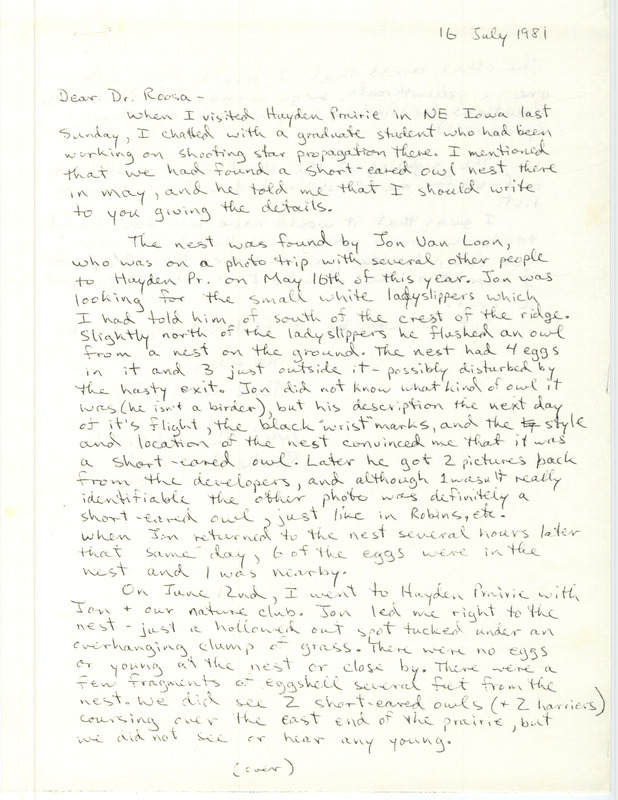 16 July 1981
Dear Dr. Roosa -
When I visited Hayden Prairie in NE Iowa last
Sunday, I chatted with a graduate student who had been
working on shooting star propagation there. I mentioned
that we had found a short-eared owl nest there
in may, and he told me that I should write
to you giving the details.
The nest was found by Jon Van Loon,
who was on a photo trip with several other people
to Hayden Pr. on May 16th of this year. Jon was
looking for the small white ladyslippers which
I had told him of south of the crest of the ridge.
Slightly north of the ladyslippers he flushed an owl
from a nest on the ground. The nest had 4 eggs
in it and 3 just outside it - possibly disturbed by
the hasty exit. Jon did not know what kind of owl it
was (he isn't a birder), but his description the next day
of it's flight, the black "wrist" marks, and the style
and location of the nest convinced me that it was
a short-eared owl. Later he got 2 pictures back
from the developers, and although 1 wasn't really
identifiable the other photo was definitely a
short-eared owl, just like in Robins, etc.
When Jon returned to the nest several hours later
that same day, 6 of the eggs were in the
nest and 1 was nearby.
On June 2nd, I went to Hayden Prairie with
Jon + our nature club. Jon led me right to the
nest - just a hollowed out spot tucked under an
overhanging clump of grass. There were no eggs
or young at the nest or close by. There were a
few fragments of eggshell several feet from the
nest. We did see 2 short-eared owls (+ 2 harriers)
coursing over the east end of the prairie, but
we did not see or hear any young.
(over)